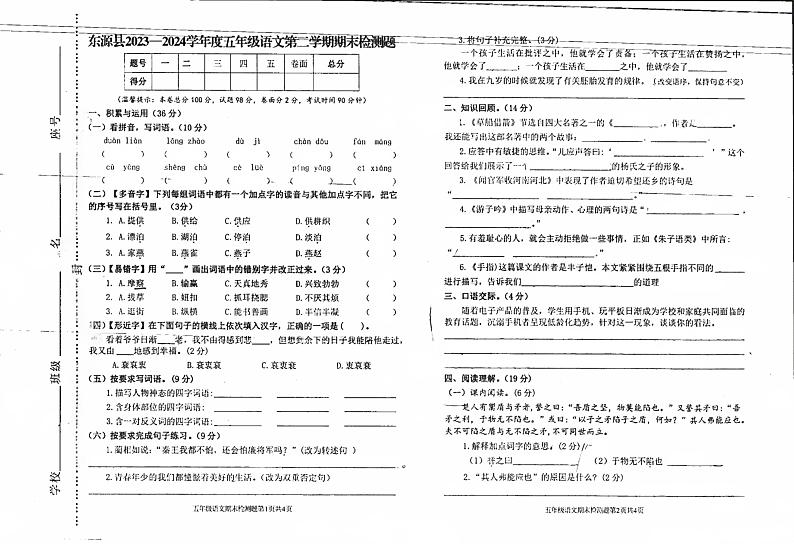 座号
姓名
班级
学校
封
东源县2023—2024学年度五年级语文第二学期期末检测题
题号 一 二 三 四 五 卷面 总分
得分
(温馨提示:本卷总分100分,试题98分,卷面分2分,考试时间90分钟)
一、积累与运用(36分)
(一)看拼音,写词语。(10分)
duàn liàn lǒng zhào dù jì chàn dǒu fán máng
( ) ( ) ( ) ( ) ( )
cè yǒng shèng chù cè lüè píng yōng cí xiáng
( ) ( ) ( ) ( ) ( )
(二)【多音字】下列每组词语中都有一个加点字的读音与其他加点字不同,把它
的序号写在括号里。(3分)
1. A.提供 B.供给 C.供应 D.供耕织 ( )
2. A.漂泊 B.湖泊 C.停泊 D.淡泊 ( )
3. A.家燕 B.燕雀 C.燕子 D.燕赵 ( )
(三)【易错字】用“____”画出词语中的错别字并改正过来。(3分)
1. A.摩察 B.输赢 C.天真地秀 D.兴致勃勃 ( )
2. A.拔草 B.妞扣 C.抓耳挠腮 D.不厌其烦 ( )
3. A.逛街 B.纵横 C.能书善画 D.半信半凝 ( )
(四)【形近字】在下面句子的横线上依次填入汉字,正确的一项是( )。
看着爷爷日渐____老,我不由得感到悲____,但想到余下的日子我能陪他走过,
我又由____地感到幸福。(2分)
A.衰哀衷 B.衰衷哀 C.哀衷衰 D.衷哀衰
(五)按要求写词语。(9分)
1.描写人物神态的四字词语:
2.含身体部位的四字词语:
3.含一对反义词的四字词语:
(六)按要求完成句子练习。(9分)
1.蔺相如说:“秦王我都不怕,还会怕廉将军吗?”(改为转述句)
2.青春年少的我们都憧憬着美好的生活。(改为双重否定句)
五年级语文期末检测题第1页共4页
3.将句子补充完整。(3分)
一个孩子生活在批评之中,他就学会了责备;一个孩子生活在赞扬之中,
他就学会了______;一个孩子生活在______之中,他就学会了______
4.我在九岁的时候就发现了有关胚胎发育的规律。(改变语序,保持句意不变)
二、知识回顾。(14分)
1.《草船借箭》节选自四大名著之一的《__________,作者________
我还能写出这部名著中的两个故事:__________、__________
2.应答中有敏捷的思维。“儿应声答曰:‘__________’”这个
回答给我们展示了一个__________的杨氏之子的形象。
3.《闻官军收河南河北》中表现了作者迫切希望还乡的诗句是
“__________
4.《游子吟》中描写母亲动作、心理的两句诗是“__________,
__________。”
5.有羞耻心的人,就会主动拒绝做一些事情,正如《朱子语类》中所言:
“__________,__________。”
6.《手指》这篇课文的作者是丰子恺。本文紧紧围绕五根手指不同的______
进行描写,告诉我们__________的道理
三、口语交际。(4分)
随着电子产品的普及,学生用手机、玩平板日渐成为学校和家庭共同面临的
教育话题,沉溺手机者呈现低龄化趋势,针对这一现象,谈谈你的看法。
四、阅读理解。(19分)
(一)课内阅读。(6分)
楚人有鬻盾与矛者,誉之曰:“吾盾之坚,物莫能陷也。”又誉其矛曰:“吾
矛之利,于物无不陷也。”或曰:“以子之矛陷子之盾,何如?”其人弗能应也。
夫不可陷之盾与无不陷之矛,不可同世而立。
1.解释加点词字的意思。(2分)
(1)誉之曰__________ (2)于物无不陷也__________
2.“其人弗能应也”的原因是什么?(2分)
五年级语文期末检测题第2页共4页